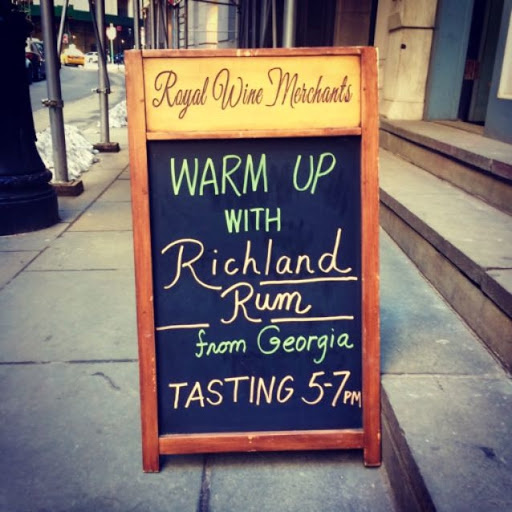 Royal Wine Merchants
WARM UP
WITH
Richland
Rum
from Georgia
TASTING 5-7PM